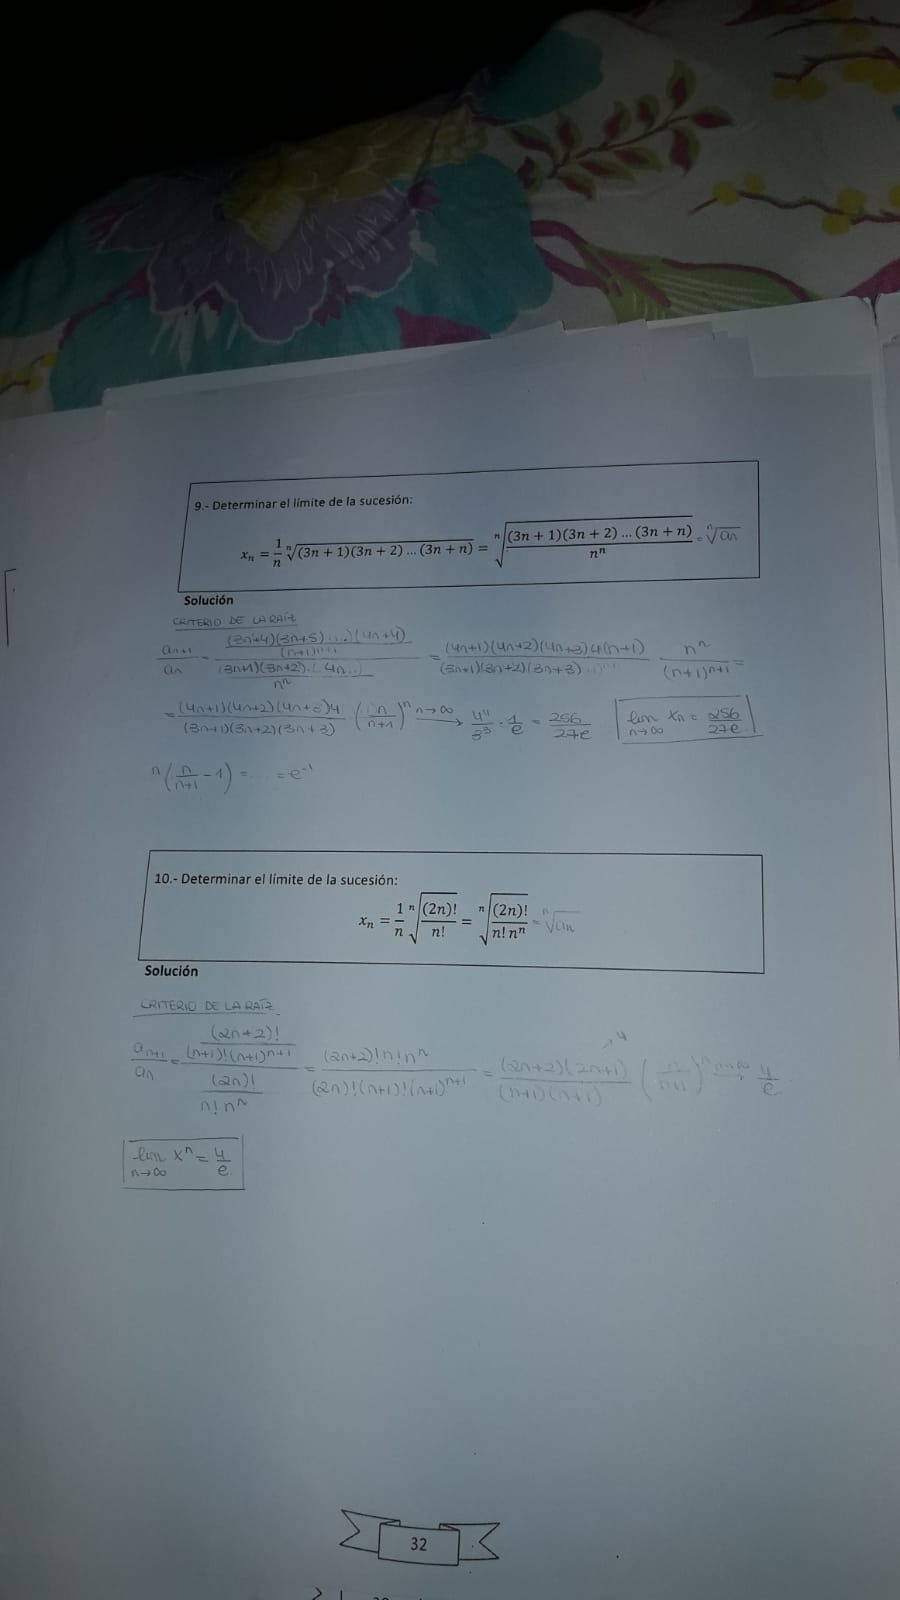 9.- Determinar el límite de la sucesión:
xₙ = 1/n ⁿ√((3n + 1)(3n + 2) … (3n + n)) = ⁿ√((3n + 1)(3n + 2) … (3n + n) / nⁿ) = ⁿ√aₙ
Solución
CRITERIO DE LA RAÍZ
aₙ₊₁/aₙ = ((3n+4)(3n+5)....(4n+4) / (n+1)ⁿ⁺¹) / ((3n+1)(3n+2)..(4n..) / nⁿ) = (4n+1)(4n+2)(4n+3)4(n+1) / (3n+1)(3n+2)(3n+3) · nⁿ/(n+1)ⁿ⁺¹ =
= (4n+1)(4n+2)(4n+3)4 / (3n+1)(3n+2)(3n+3) · (n/(n+1))ⁿ n→∞ → 4⁴/3³ · 1/e = 256/27e lim n→∞ xₙ = 256/27e
n(n/(n+1) − 1) = .... = e⁻¹
10.- Determinar el límite de la sucesión:
xₙ = 1/n ⁿ√((2n)!/n!) = ⁿ√((2n)!/(n! nⁿ)) = ⁿ√aₙ
Solución
CRITERIO DE LA RAÍZ
aₙ₊₁/aₙ = ((2n+2)! / (n+1)!(n+1)ⁿ⁺¹) / ((2n)! / n! nⁿ) = (2n+2)! n! nⁿ / (2n)!(n+1)!(n+1)ⁿ⁺¹ = (2n+2)(2n+1) / (n+1)(n+1) (n/(n+1))ⁿ n→∞ → 4/e
lim n→∞ xⁿ = 4/e
32